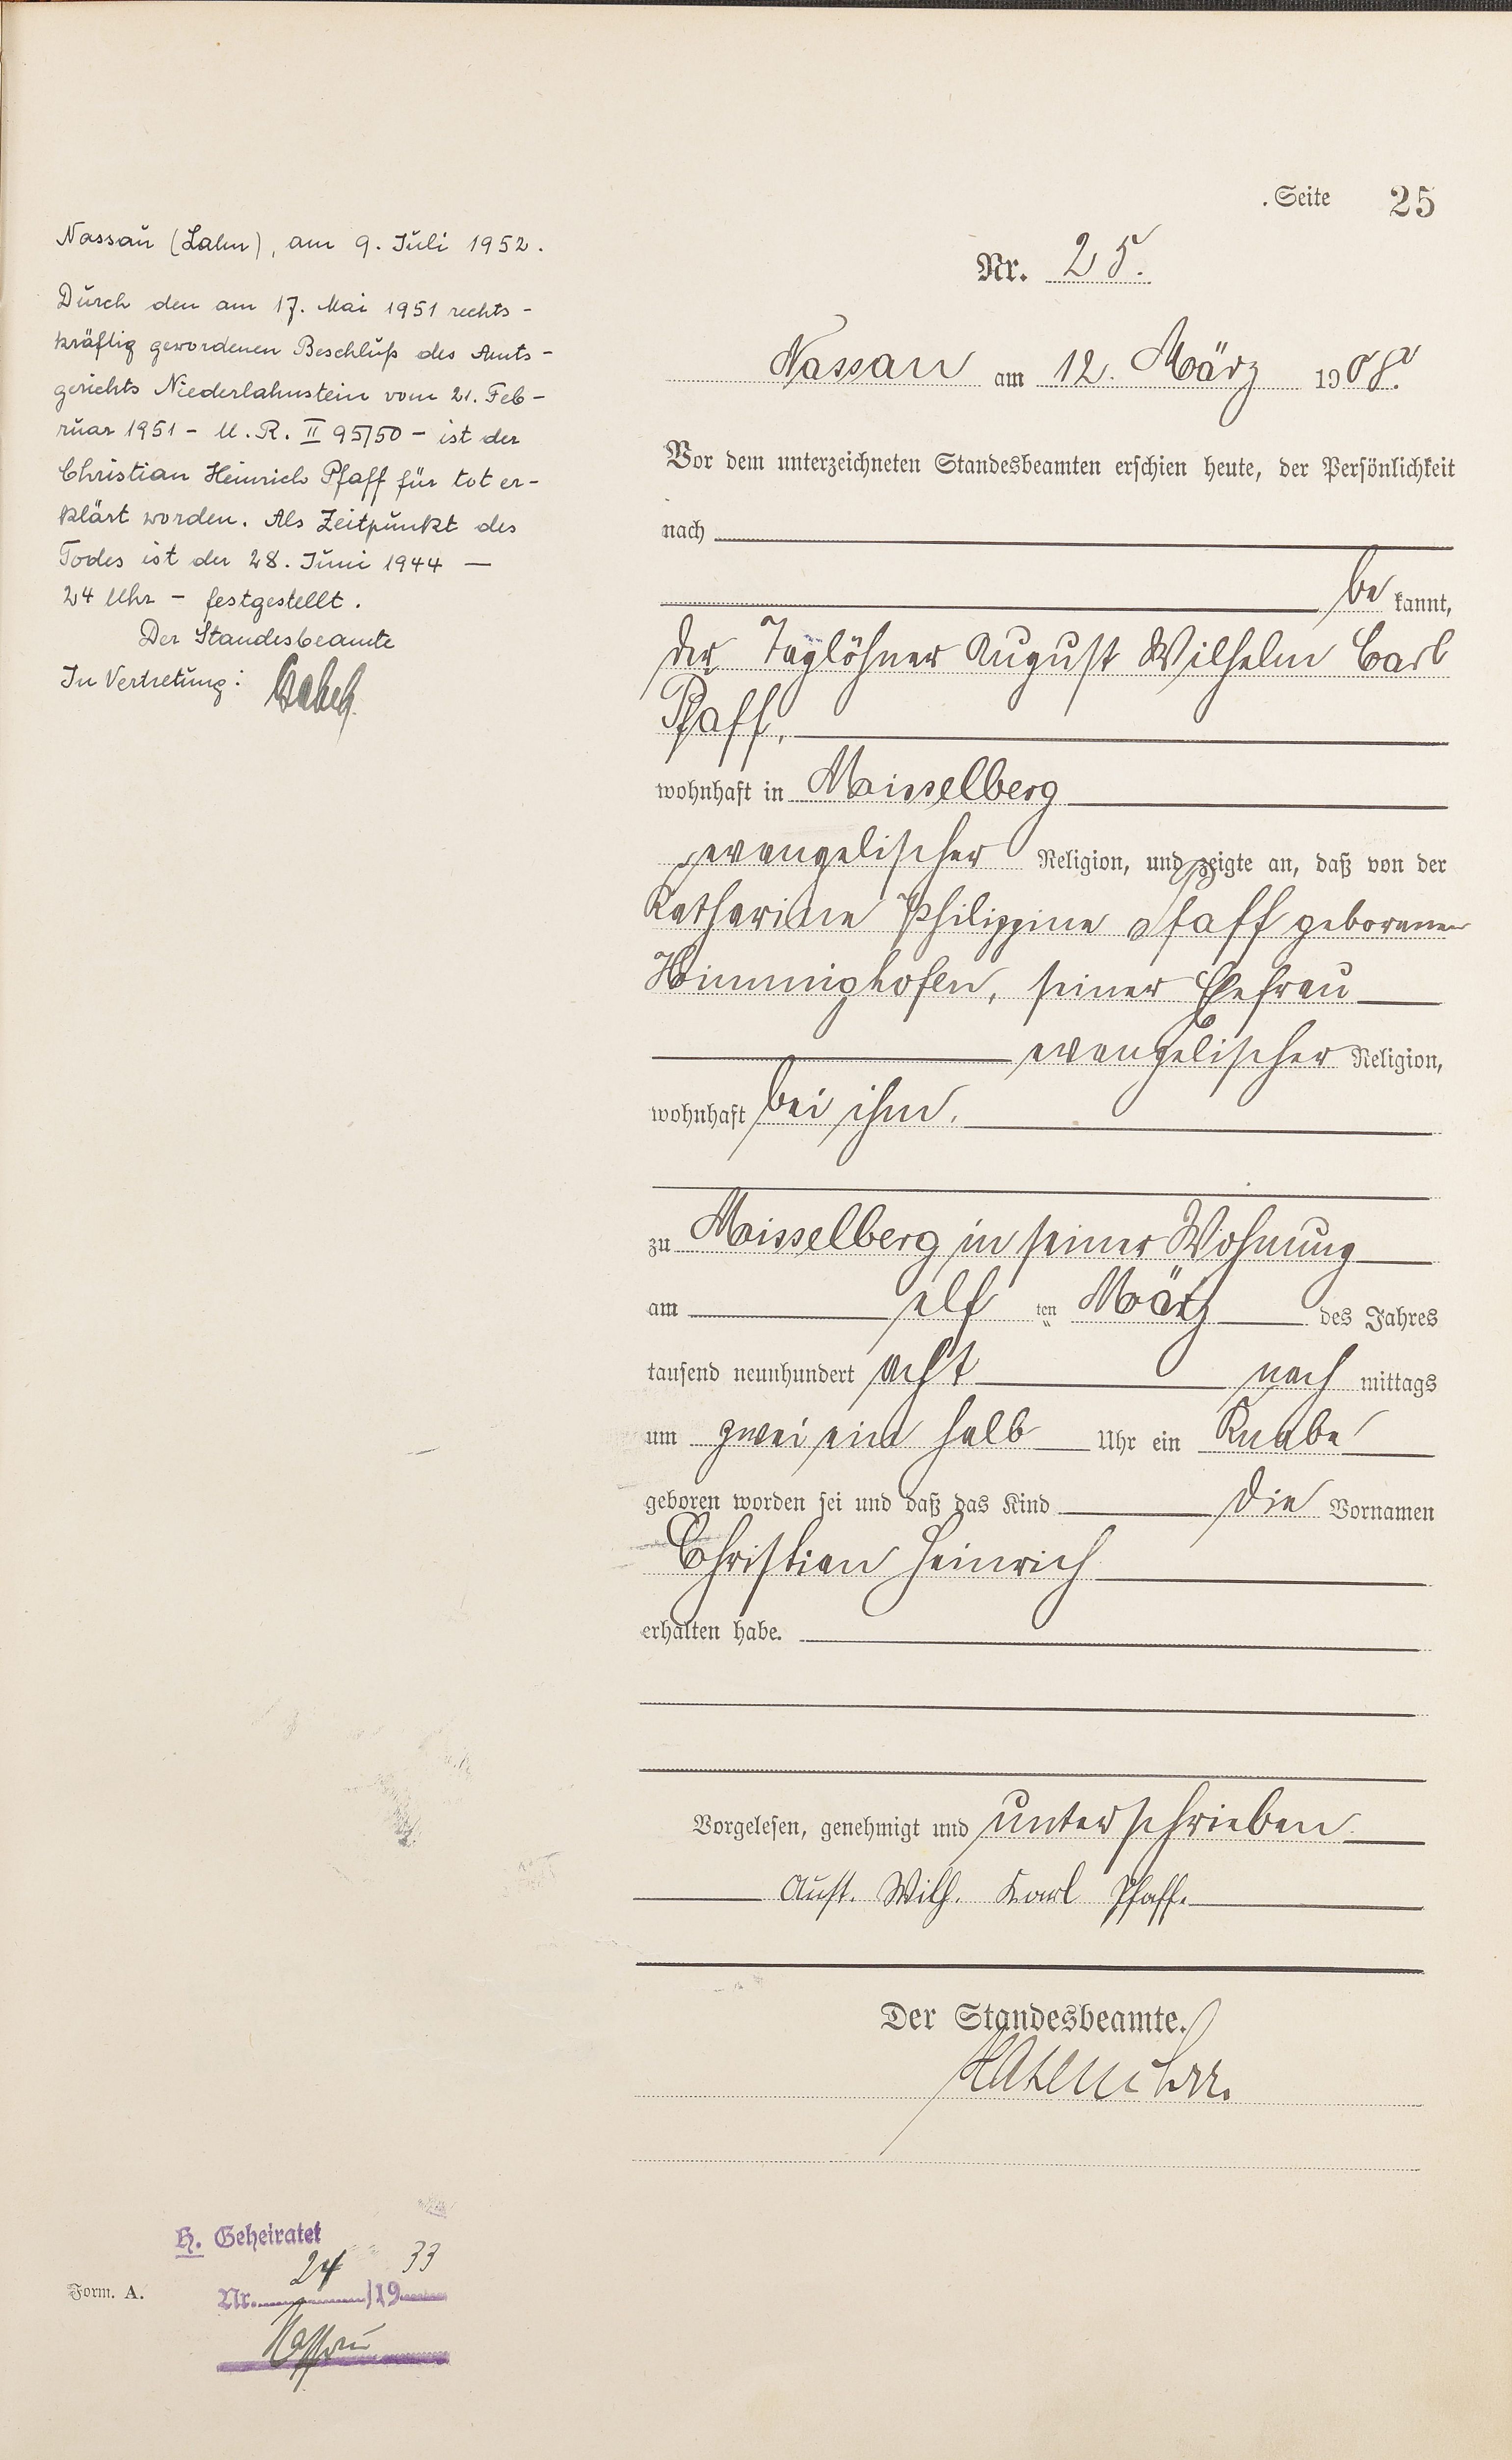 Seite 25
Nr. 25.
Nassau am 12. März 1908.
Vor dem unterzeichneten Standesbeamten erschien heute, der Persönlichkeit
nach
be kannt,
der Taglöhner August Wilhelm Carl
Pfaff,
wohnhaft in Misselberg
evangelischer Religion, und zeigte an, daß von der
Katharine Philippine Pfaff geborenen
Himmighofen, seiner Ehefrau
evangelischer Religion,
wohnhaft bei ihm,
zu Misselberg in seiner Wohnung
am elf ten März des Jahres
tausend neunhundert acht nach mittags
um zwei ein halb Uhr ein Knabe
geboren worden sei und daß das Kind die Vornamen
Christian Heinrich
erhalten habe.
Vorgelesen, genehmigt und unterschrieben
Aust. Wilh. Karl Pfaff.
Der Standesbeamte.
Nassau (Lahn), am 9. Juli 1952.
Durch den am 17. Mai 1951 rechts-
kräftig gewordenen Beschluß des Amts-
gerichts Niederlahnstein vom 21. Feb-
ruar 1951 - U. R. II 95/50 - ist der
Christian Heinrich Pfaff für tot er-
klärt worden. Als Zeitpunkt des
Todes ist der 28. Juni 1944 —
24 Uhr - festgestellt.
Der Standesbeamte
In Vertretung:
H. Geheiratet
Nr. 24 /19 33
Nassau
Form. A.